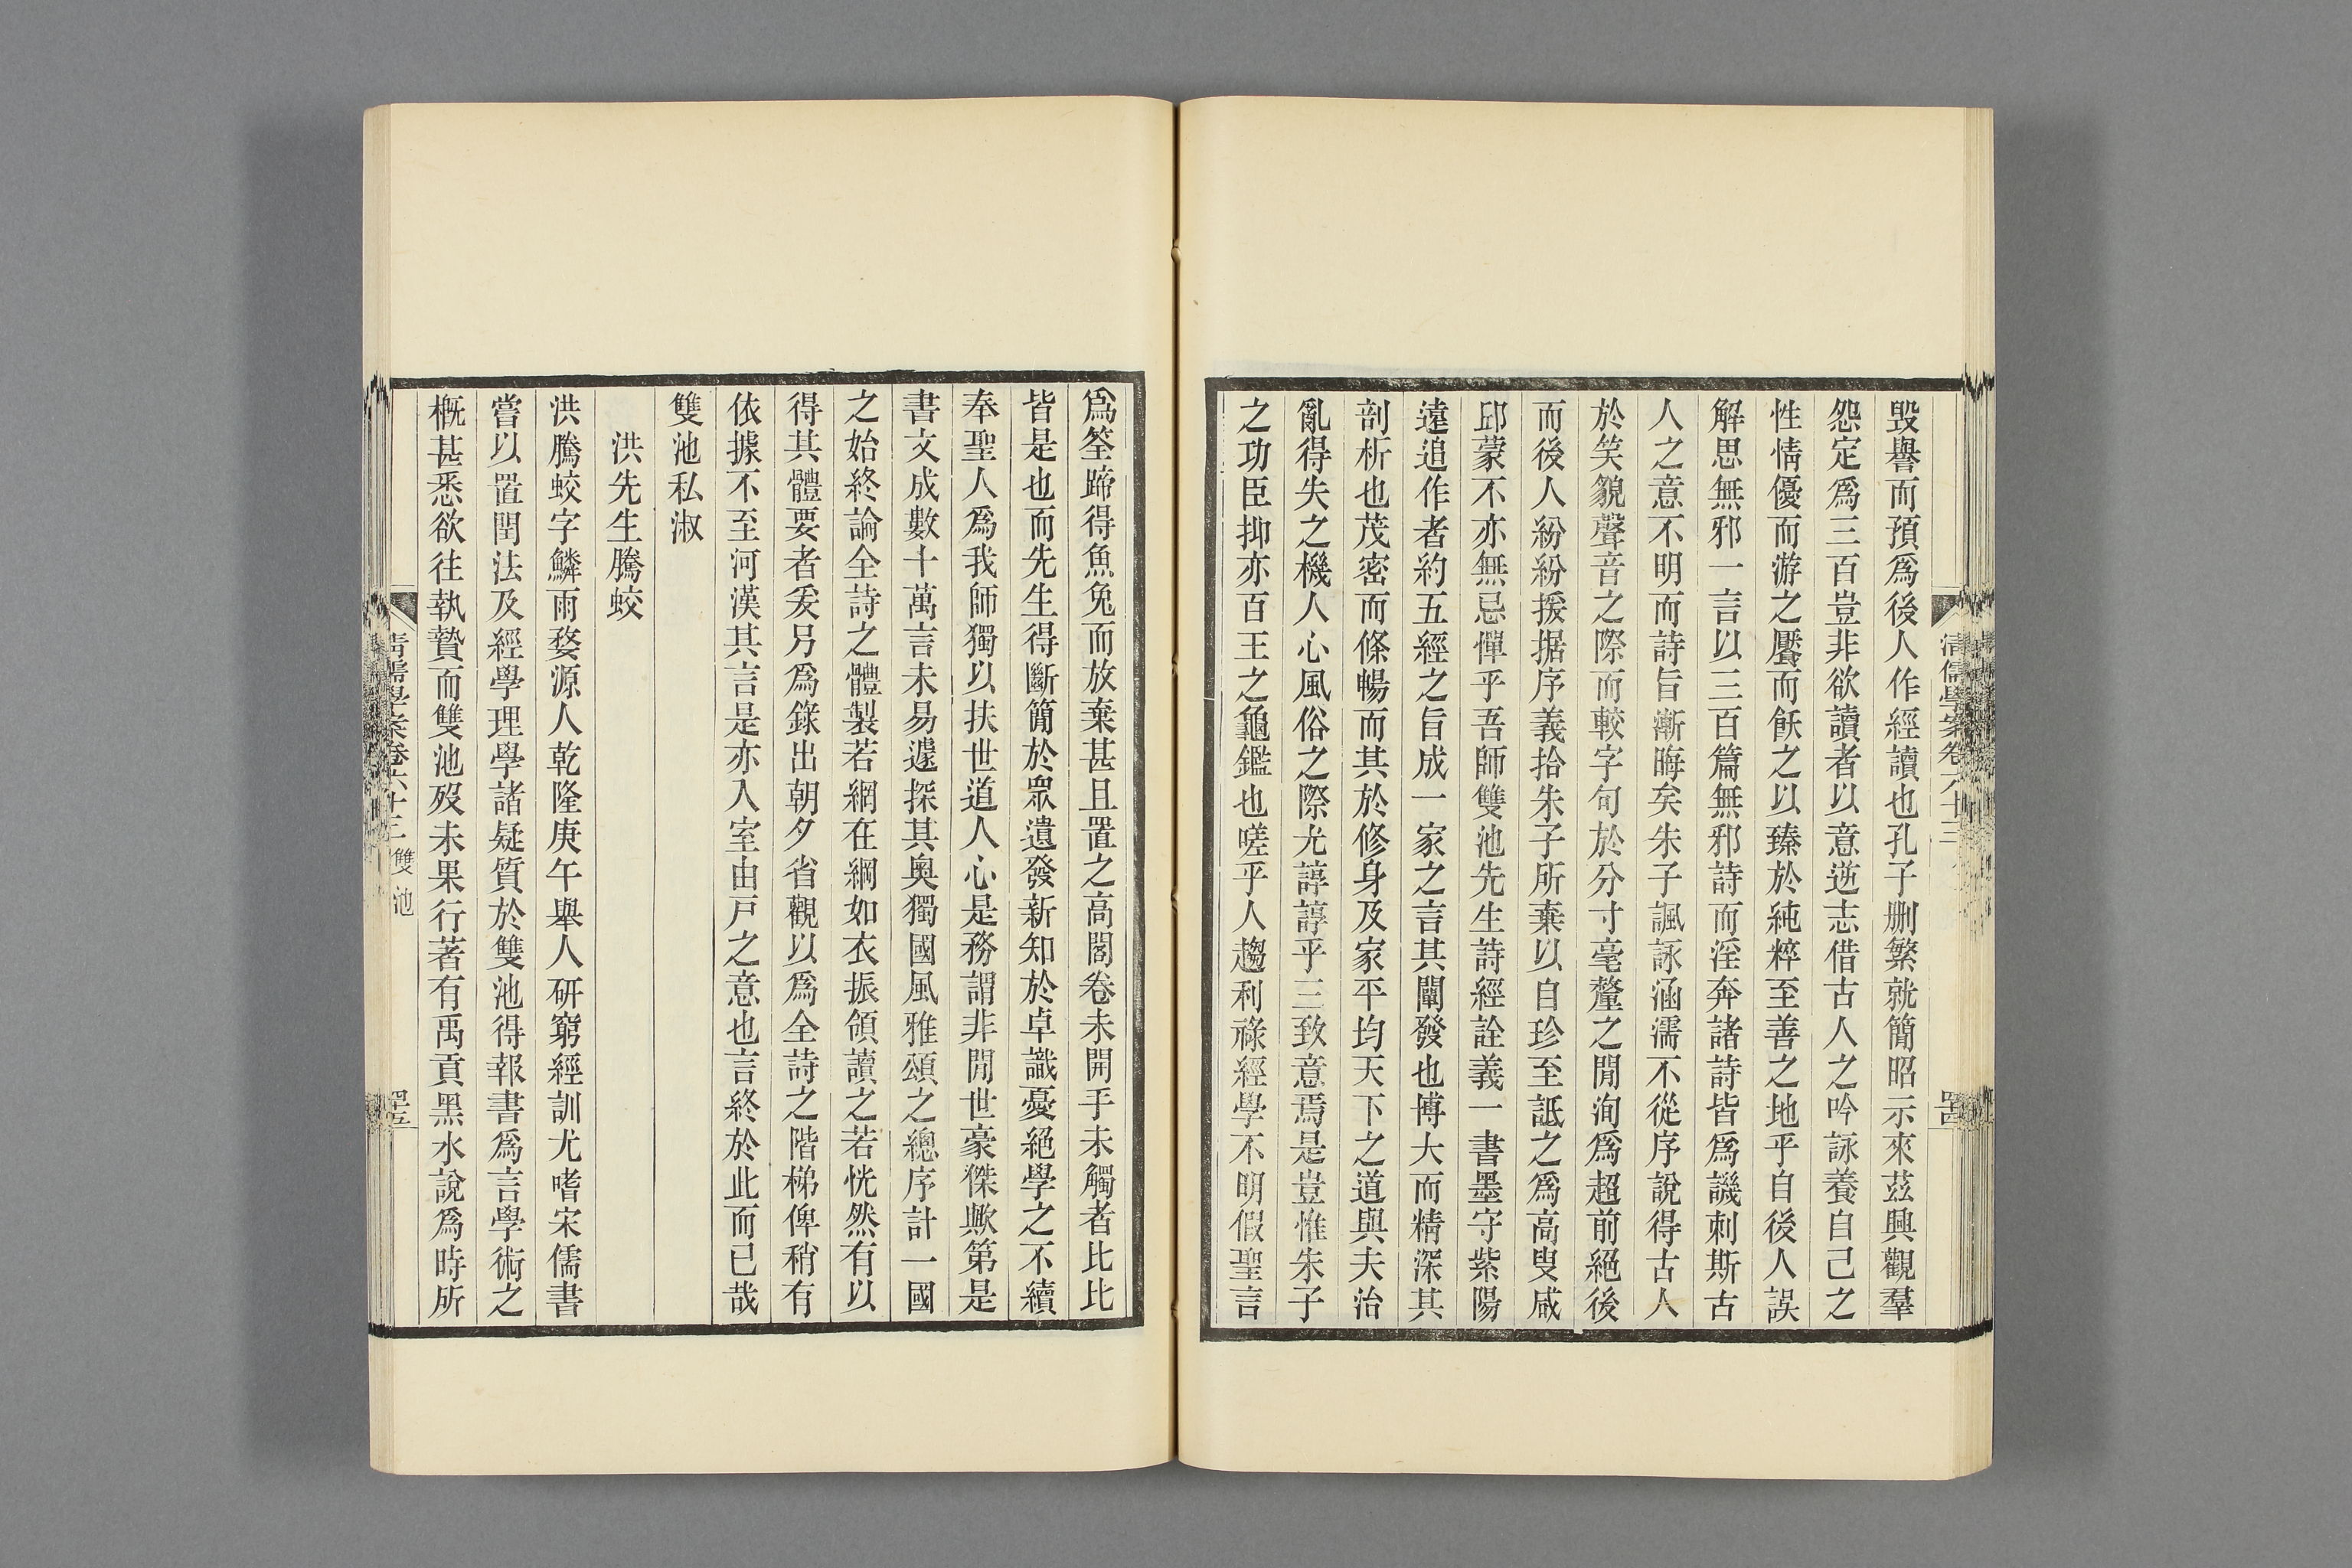 清儒學案卷六十三
毀譽而預爲後人作經讀也孔子刪繁就簡昭示來茲興觀羣
怨定爲三百豈非欲讀者以意逆志借古人之吟詠養自己之
性情優而游之饜而飫之以臻於純粹至善之地乎自後人誤
解思無邪一言以三百篇無邪詩而淫奔諸詩皆爲譏刺斯古
人之意不明而詩旨漸晦矣朱子諷詠涵濡不從序說得古人
於笑貌聲音之際而較字句於分寸毫釐之閒洵爲超前絕後
而後人紛紛援据序義拾朱子所棄以自珍至詆之爲高叟咸
邱蒙不亦無忌憚乎吾師雙池先生詩經詮義一書墨守紫陽
遠追作者約五經之旨成一家之言其闡發也博大而精深其
剖析也茂密而條暢而其於修身及家平均天下之道與夫治
亂得失之機人心風俗之際尤諄諄乎三致意焉是豈惟朱子
之功臣抑亦百王之龜鑑也嗟乎人趨利祿經學不明假聖言
爲筌蹄得魚兔而放棄甚且置之高閣卷未開手未觸者比比
皆是也而先生得斷簡於眾遺發新知於卓識憂絕學之不續
奉聖人爲我師獨以扶世道人心是務謂非閒世豪傑歟第是
書文成數十萬言未易遽探其奧獨國風雅頌之總序計一國
之始終論全詩之體製若網在綱如衣振領讀之若恍然有以
得其體要者爰另爲錄出朝夕省觀以爲全詩之階梯俾稍有
依據不至河漢其言是亦入室由戶之意也言終於此而已哉
雙池私淑
洪先生騰蛟
洪騰蛟字鱗雨婺源人乾隆庚午舉人研窮經訓尤嗜宋儒書
嘗以置閏法及經學理學諸疑質於雙池得報書爲言學術之
概甚悉欲往執贄而雙池歿未果行著有禹貢黑水說爲時所
清儒學案卷六十三 雙池 四五